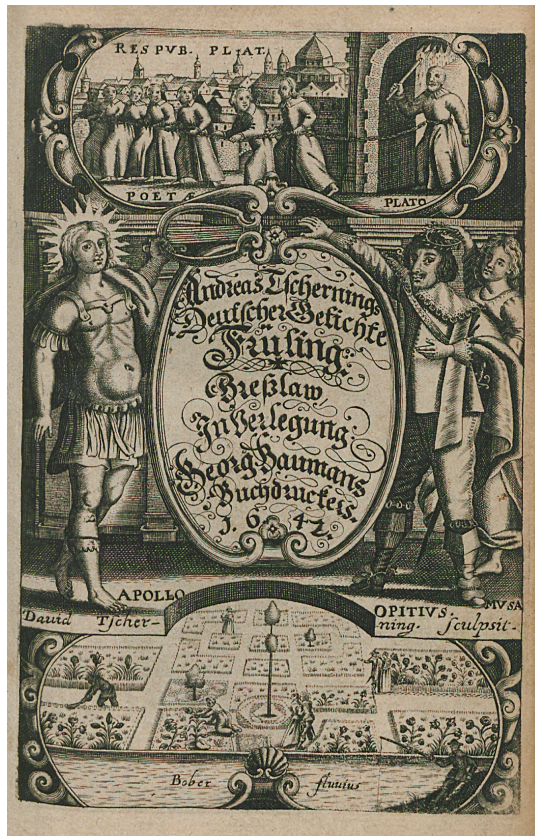 RES PVB. PLAT.
POETÆ
PLATO
Andreas Tschernings
Deutscher Getichte
Früling.
Breßlaw,
In Verlegung
Georg Baumans
Buchdruckers.
1642.
APOLLO
OPITIUS.
MVSA
David Tscher-
ning. sculpsit.
Bober fluvius